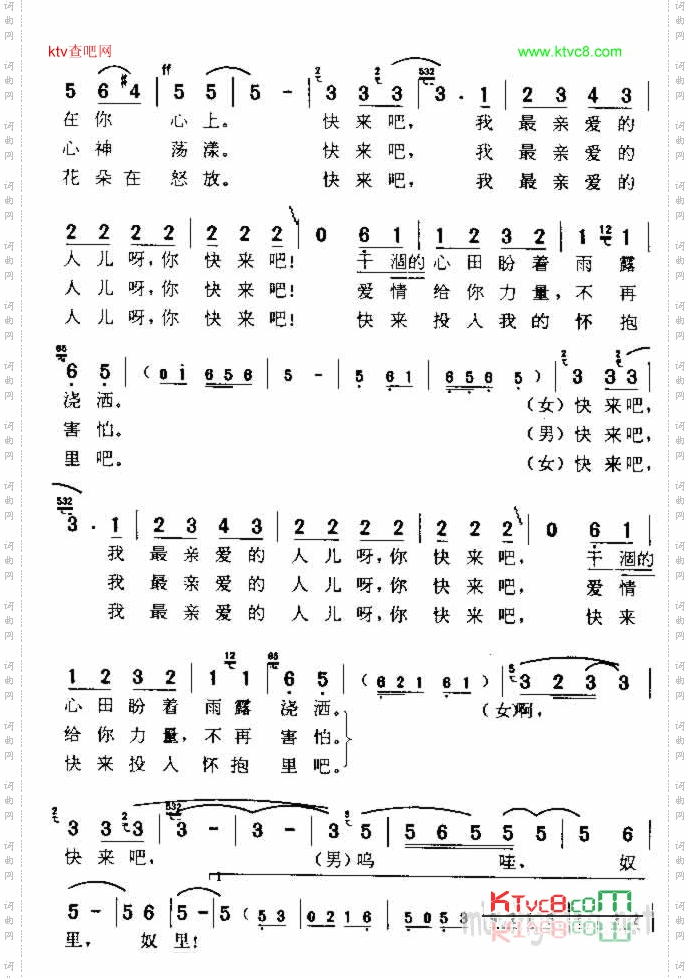 ktv查吧网 www.ktvc8.com
ff 532
5 6 #4 | 5 5 5 | 5 - | 3 3 3 | 3 . 1 | 2 3 4 3 |
在你 心上。 快来吧, 我 最亲爱的
心神 荡漾。 快来吧, 我 最亲爱的
花朵在 怒放。 快来吧, 我 最亲爱的
2 2 2 2 | 2 2 2 | 0 6 1 | 1 2 3 2 | 1 12 1 |
人儿呀,你 快来吧! 干涸的 心田盼着 雨 露
人儿呀,你 快来吧! 爱情 给你力量, 不 再
人儿呀,你 快来吧! 快来 投入我的 怀 抱
65
6 5 | ( 0 i 6 5 6 | 5 - | 5 6 1 | 6 5 6 5 ) | 3 3 3 |
浇洒。 (女)快来吧,
害怕。 (男)快来吧,
里吧。 (女)快来吧,
532
3 . 1 | 2 3 4 3 | 2 2 2 2 | 2 2 2 | 0 6 1 |
我 最亲爱的 人儿呀,你 快来吧, 干涸的
我 最亲爱的 人儿呀,你 快来吧, 爱情
我 最亲爱的 人儿呀,你 快来吧, 快来
12 65 5
1 2 3 2 | 1 1 | 6 5 | ( 6 2 1 6 1 ) | 3 2 3 3 |
心田盼着 雨露 浇洒。 (女)啊,
给你力量, 不再 害怕。
快来投入 怀抱 里吧。
2 2 532 3
3 3 3 | 3 - | 3 - | 3 5 | 5 6 5 5 | 5 6 |
快来吧, (男)呜 哇, 奴
1
5 - | 5 6 | 5 5 | ( 5 3 | 0 2 1 2 | 5 0 5 3 |
里, 奴里!
KTvc8com
词曲网